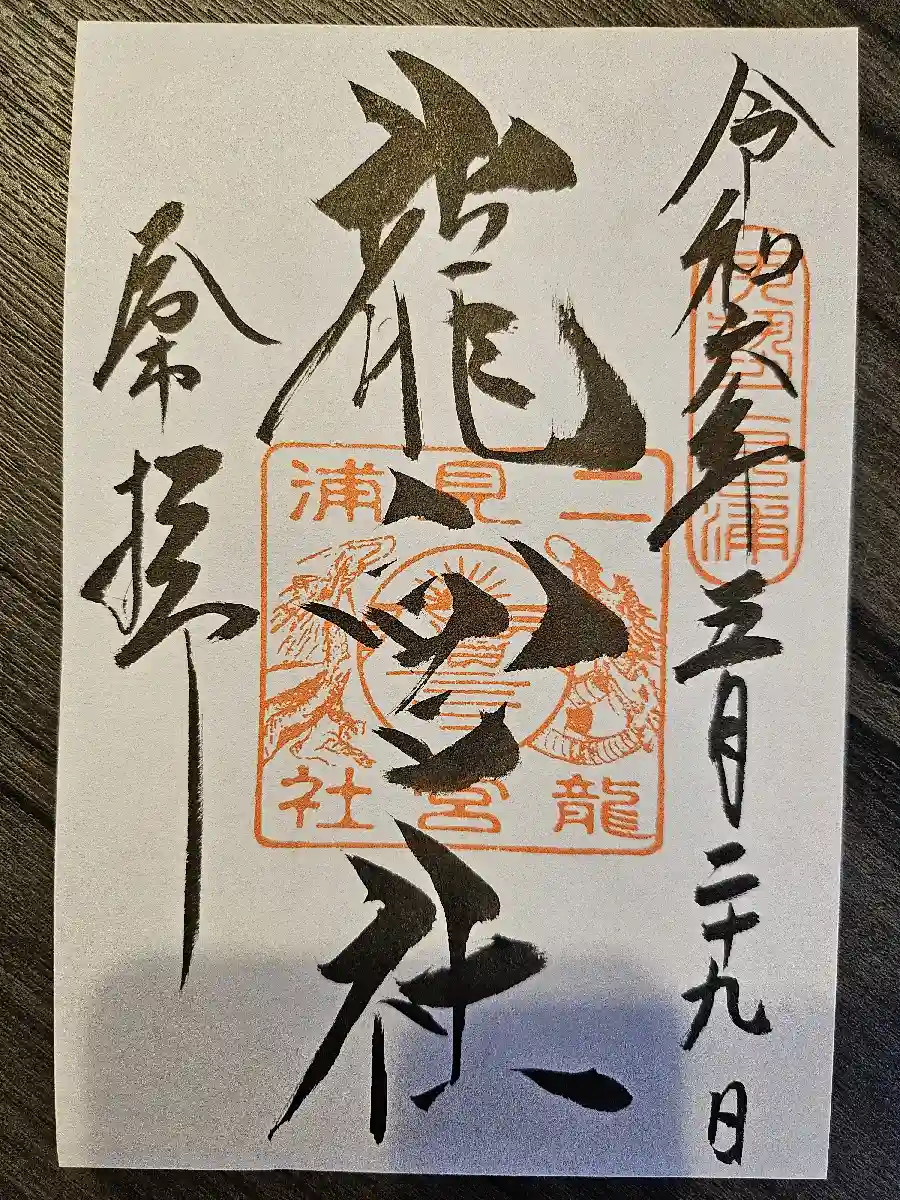 令和六年五月二十九日
伊勢二見浦
龍宮社
二見浦
龍宮社
奉拝